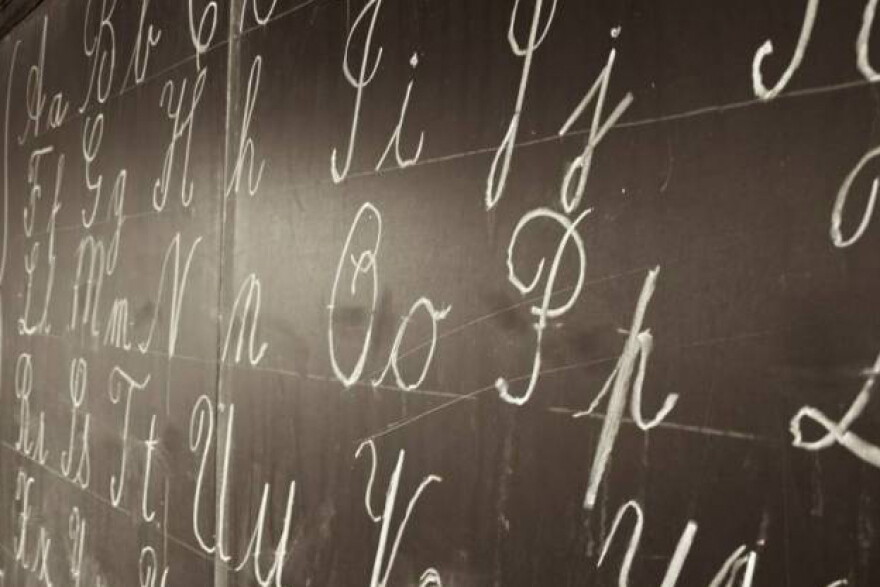 Aa Bb C
Ff Gg Hh Ii Jj
Ll Mm Nn Oo Pp
Rr Ss Tt Uu V
Xx